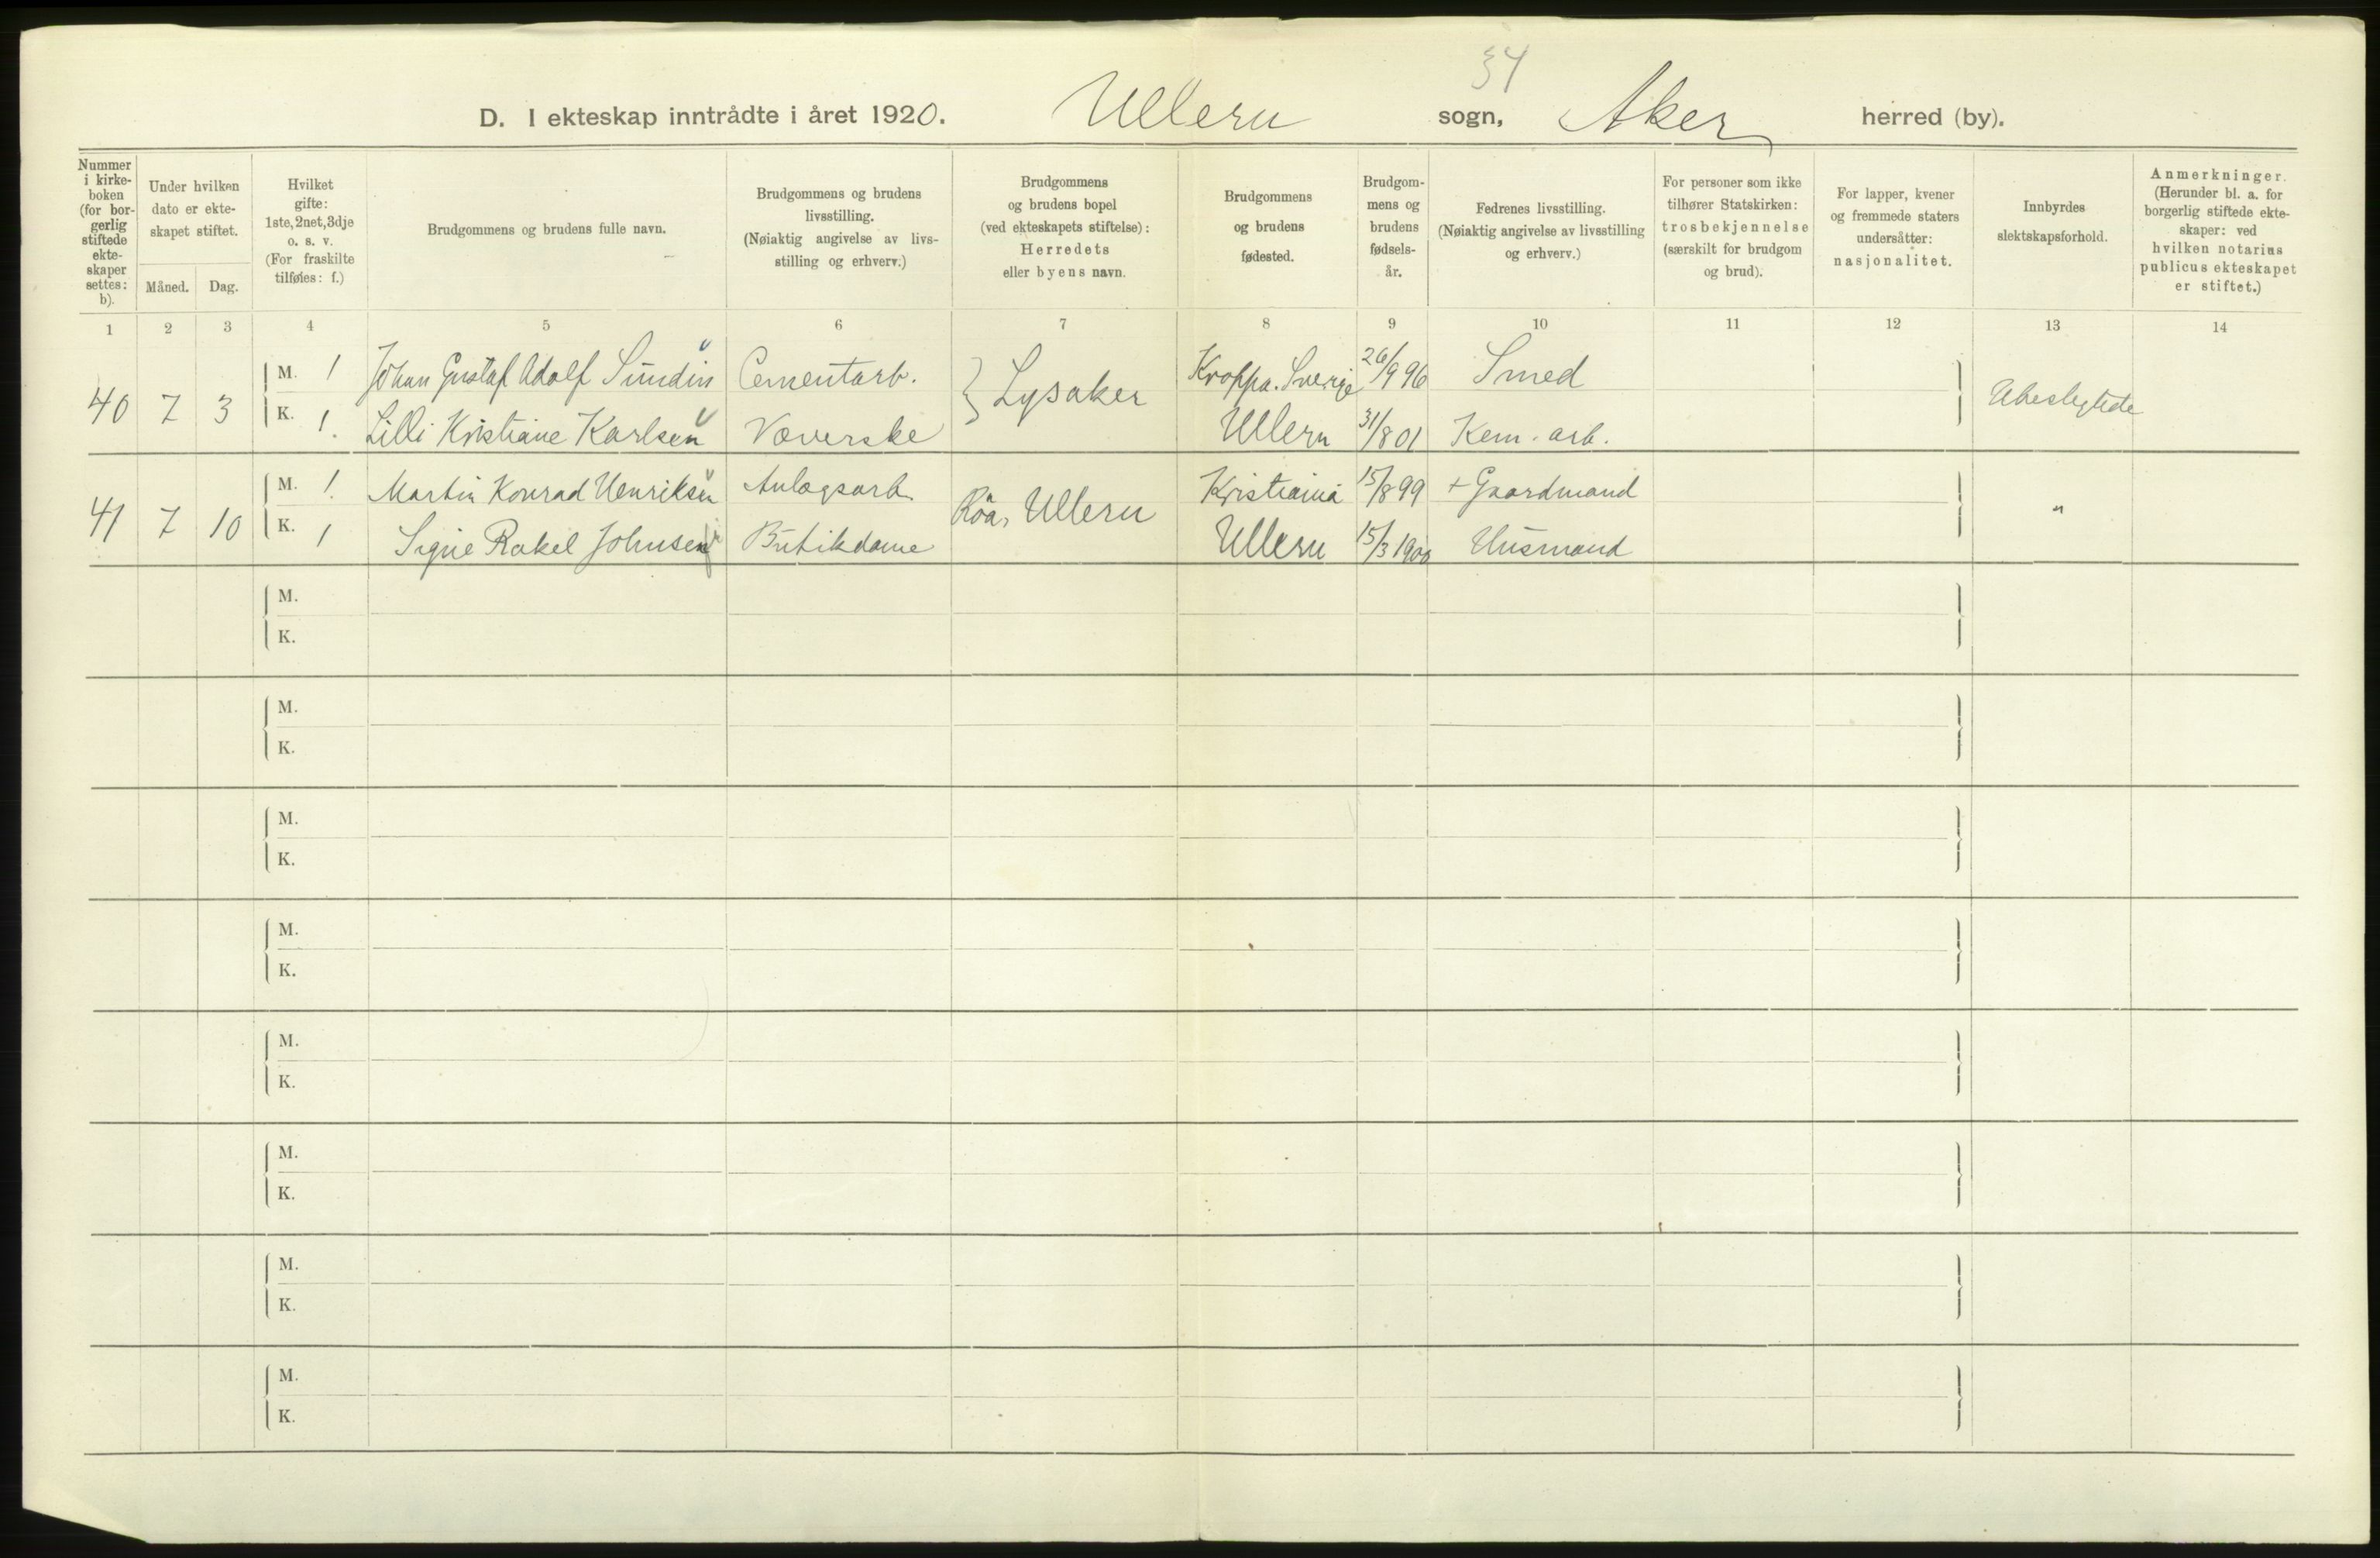 34
D. I ekteskap inntrådte i året 1920. Ullern sogn, Aker herred (by).
Nummer i kirke-boken (for bor-gerlig stiftede ekte-skaper settes: b).
Under hvilken dato er ekte-skapet stiftet.
Måned. Dag.
Hvilket gifte: 1ste, 2net, 3dje o. s. v. (For fraskilte tilføies: f.)
Brudgommens og brudens fulle navn.
Brudgommens og brudens livsstilling. (Nøiaktig angivelse av livs-stilling og erhverv.)
Brudgommens og brudens bopel (ved ekteskapets stiftelse): Herredets eller byens navn.
Brudgommens og brudens fødested.
Brudgom-mens og brudens fødsels-år.
Fedrenes livsstilling. (Nøiaktig angivelse av livsstilling og erhverv.)
For personer som ikke tilhører Statskirken: trosbekjennelse (særskilt for brudgom og brud).
For lapper, kvener og fremmede staters undersåtter: nasjonalitet.
Innbyrdes slektskapsforhold.
Anmerkninger. (Herunder bl. a. for borgerlig stiftede ekte-skaper: ved hvilken notarius publicus ekteskapet er stiftet.)
1 2 3 4 5 6 7 8 9 10 11 12 13 14
40 7 3 M. 1 Johan Gustaf Adolf Sundin Cementarb. } Lysaker Kroppa. Sverige 26/9 96 Smed Ubeslegtede
K. 1. Lilli Kristiane Karlsen Væverske Ullern 31/8 01 Kem. arb.
41 7 10 M. 1. Martin Konrad Henriksen Anlægsarb. Röa, Ullern Kristiania 15/8 99 + Gaardmand "
K. 1 Signe Rakel Johnsen Butikdame Ullern 15/3 1900 Husmand
M.
K.
M.
K.
M.
K.
M.
K.
M.
K.
M.
K.
M.
K.
M.
K.